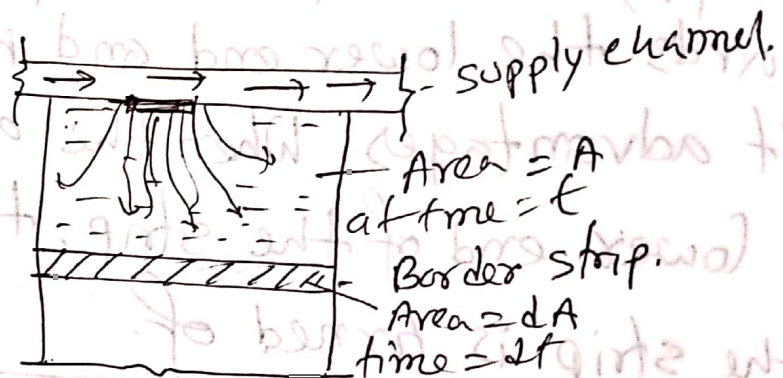 supply channel.
Area = A
at tme = t
Border strip.
Area = dA
time = dt